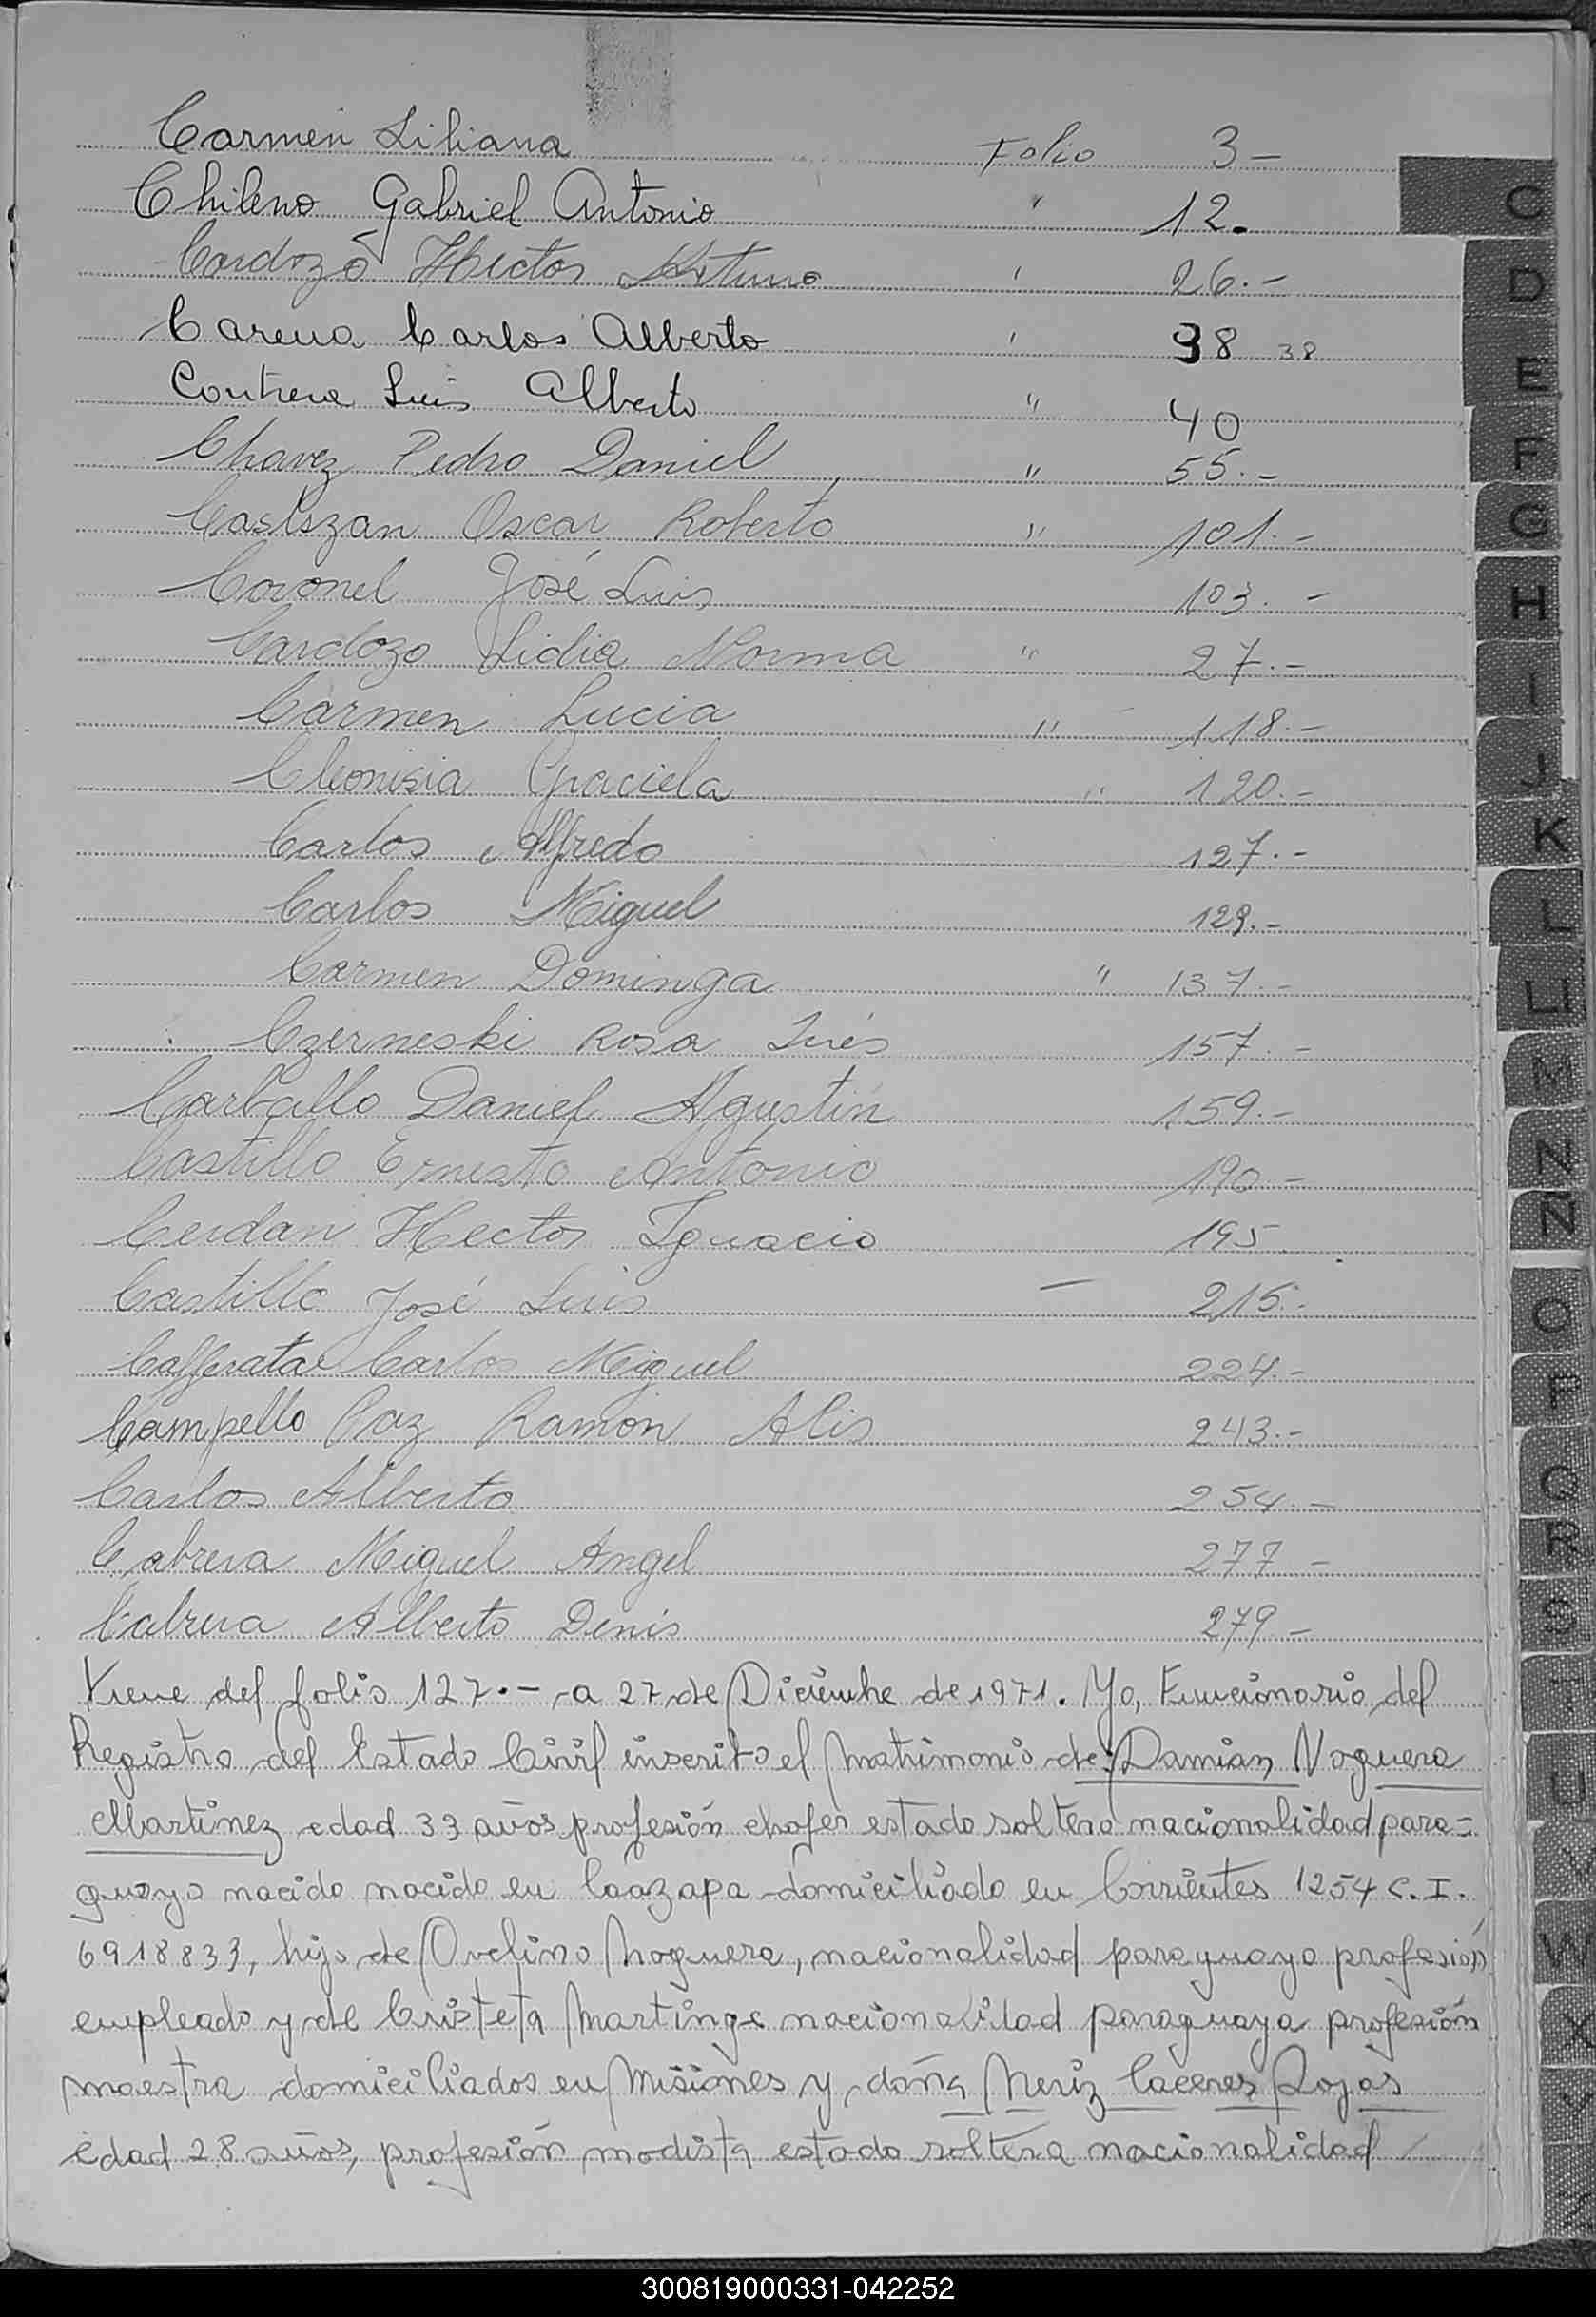 Carmen Liliana Folio 3 –
Chileno Gabriel Antonio " 12.
Cardozo Hector Arturo " 26.–
Carena Carlos Alberto " 38 38
Contrera Luis Alberto " 40
Chavez Pedro Daniel " 55.–
Oscar Roberto " 101.–
Coronel José Luis 103.–
Cardozo Lidia Norma " 27.–
Carmen Lucia " 118.–
Cleonisia Graciela " 120.–
Carlos Alfredo 127.–
Carlos Miguel 129.–
Carmen Dominga " 137.–
Czerneski Rosa Inés 157.–
Carballo Daniel Agustin 159.–
Castillo Ernesto Antonio 190 –
Cerdan Hector Ignacio 195
Castillo José Luis – 215.–
Cafferata Carlos Miguel 224.–
Campello Paz Ramon Alis 243.–
Carlos Alberto 254.–
Cabrera Miguel Angel 277 –
Cabrera Alberto Denis 279 –
Viene del folio 127.– a 27 de Diciembre de 1971. Yo, Funcionario del
Registro del Estado Civil inscribo el Matrimonio de: Damian Noguera
Martinez edad 33 años profesión chofer estado soltero nacionalidad para=
guayo nacido nacido en Caazapa domiciliado en Corrientes 1254 C.I.
6918833, hijo de Ovelino Noguera, nacionalidad paraguayo profesión
empleado y de Cristeta nacionalidad paraguaya profesión
maestra domiciliados en Misiones y doña Neriz Caceres Rojas
edad 28 años, profesión modista estado soltera nacionalidad
C
D
E
F
G
H
I
J
K
L
LL
M
N
Ñ
O
P
Q
R
S
T
U
V
W
X
Y
Z
300819000331-042252